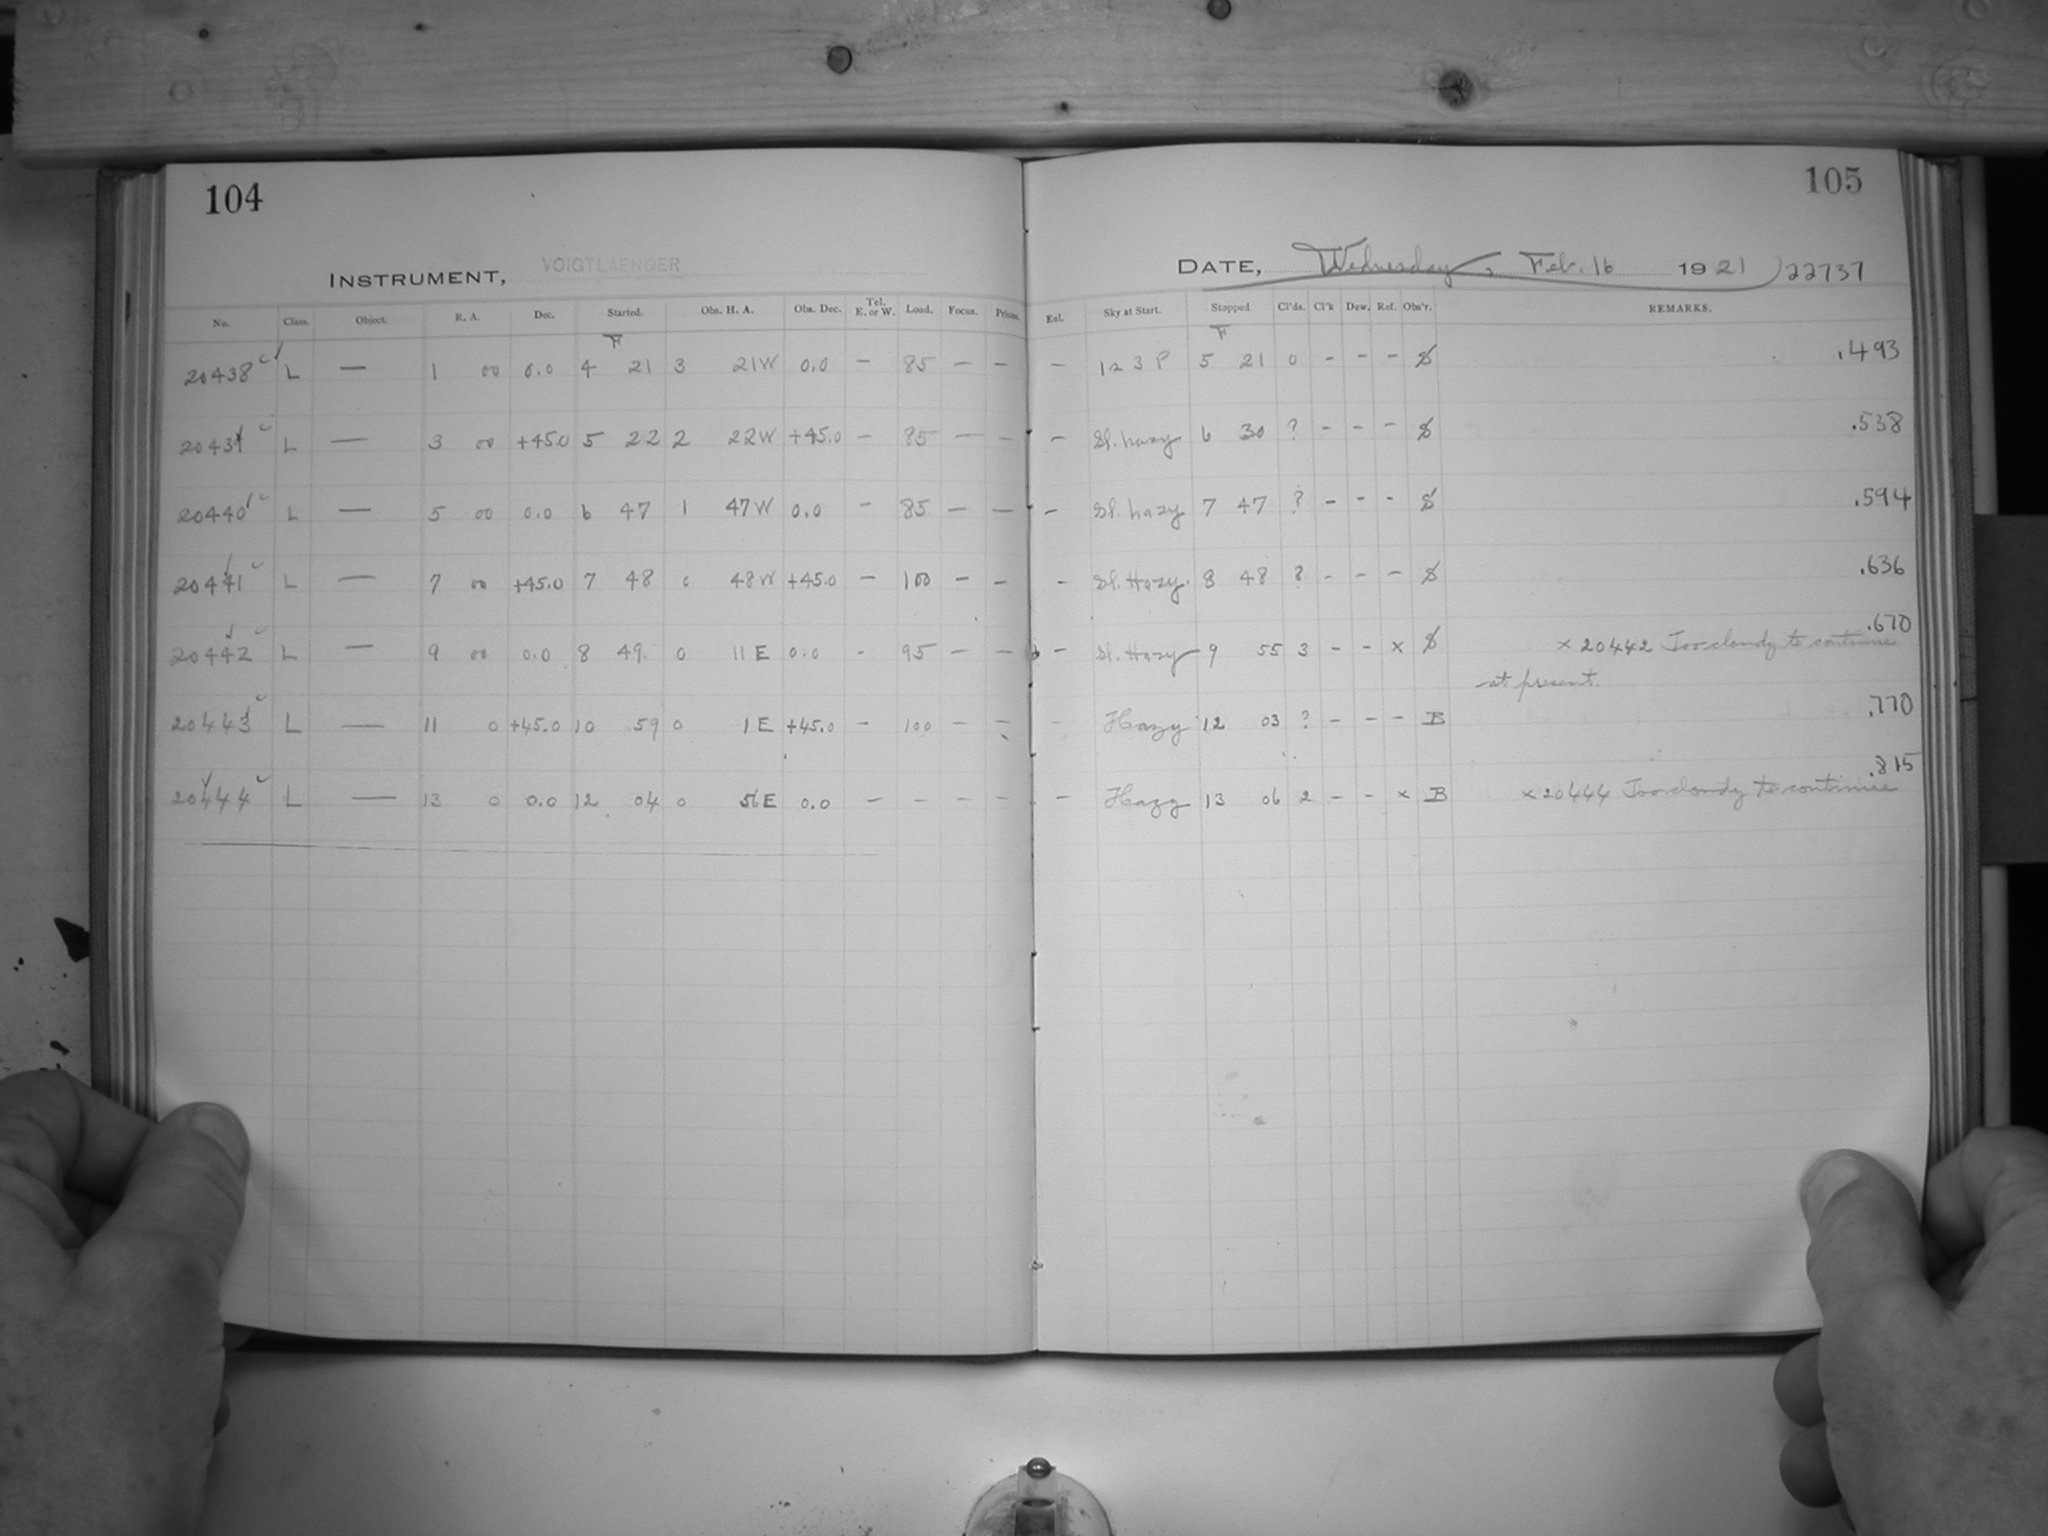 104
105
INSTRUMENT, VOIGTLAENDER
DATE, Wednesday, Feb. 16 1921 22737
No. Class. Object. R. A. Dec. Started. Obs. H. A. Obs. Dec. Tel. E. or W. Load. Focus. Prisms. Sky at Start. Stopped Cl'ds. Cl'k Dew. Ref. Obs'r. REMARKS.
F F
20438 L — 1 00 0.0 4 21 3 21W 0.0 — 85 — — — 12 3 P 5 21 0 - - - S .493
2043 L — 3 00 +45.0 5 22 2 22W +45.0 — 85 — — — Sl. hazy 6 30 ? - - - S .538
20440 L — 5 00 0.0 6 47 1 47W 0.0 — 85 — — — Sl. hazy 7 47 ? - - - S .594
20441 L — 7 00 +45.0 7 48 0 48W +45.0 — 100 — — — Sl. Hazy. 8 48 ? - - - S .636
20442 L — 9 00 0.0 8 49 0 11 E 0.0 - 95 — — — Sl. Hazy 9 55 3 - - x S .670
x 20442 Too cloudy to continue
at present.
20443 L — 11 0 +45.0 10 59 0 1 E +45.0 — 100 — — - Hazy 12 03 ? - - - B .770
20444 L — 13 0 0.0 12 04 0 56 E 0.0 — - — — — Hazy 13 06 2 - - x B .815
x 20444 Too cloudy to continue